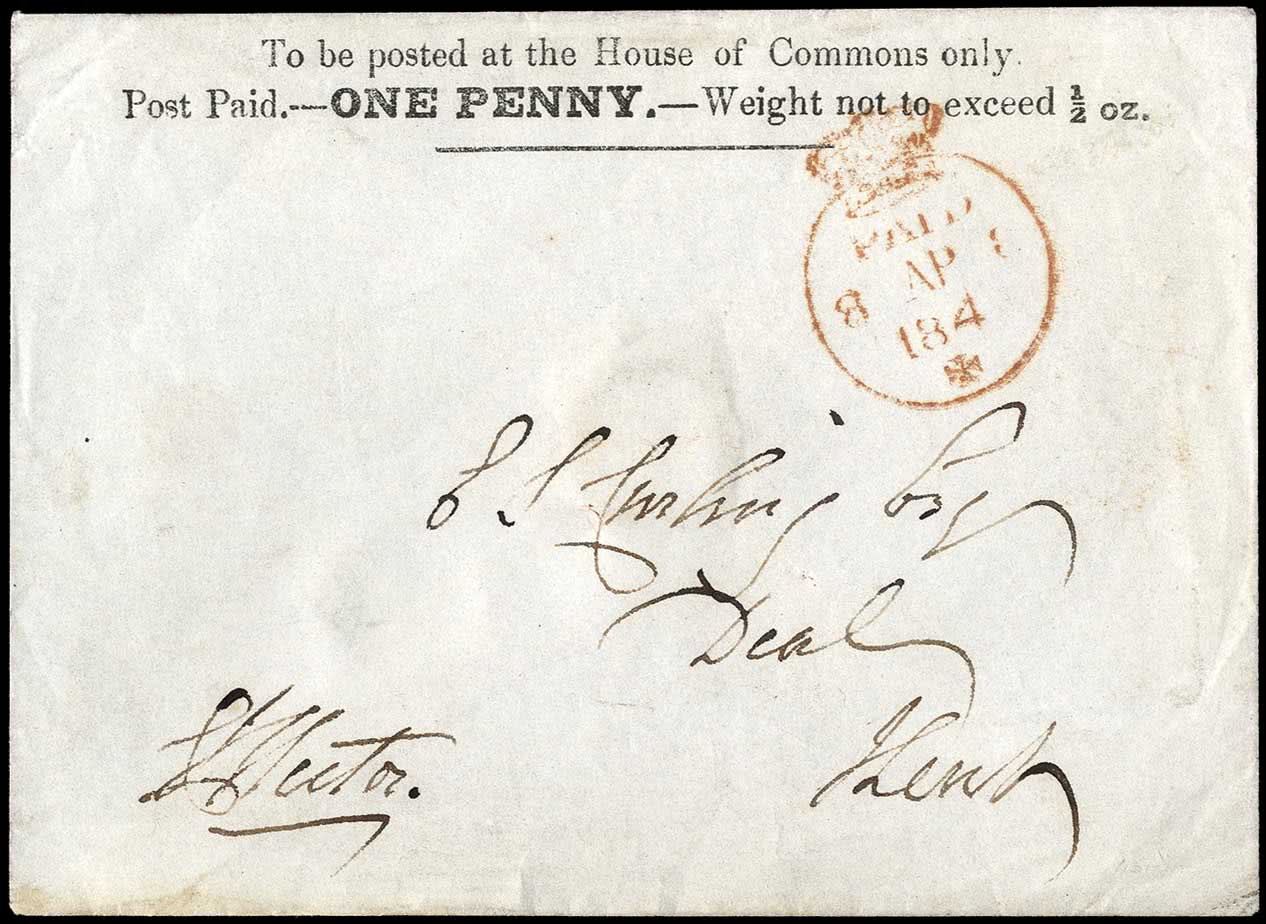 To be posted at the House of Commons only.
Post Paid.--ONE PENNY.—Weight not to exceed ½ oz.
PAID
8 AP 8
184
Esq
Deal
Kent